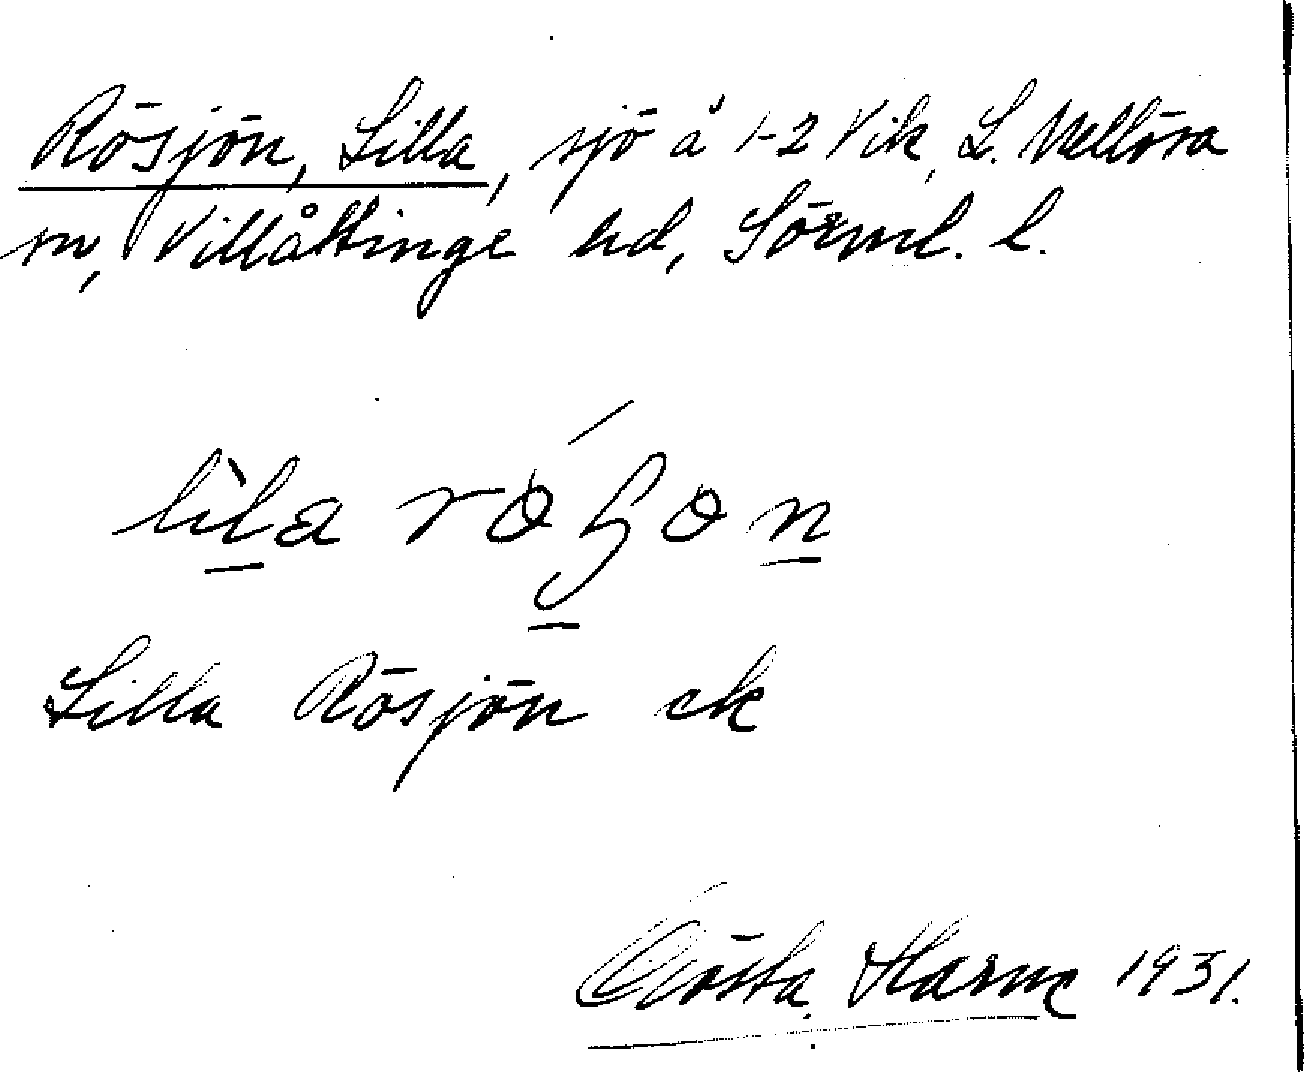 Rösjön, Lilla, sjö å 1-2 Vik, L. Mellösa
sn, Villåttinge hd, Sörml. l.
Lilla Rösjön ek
Gösta Harne 1931.